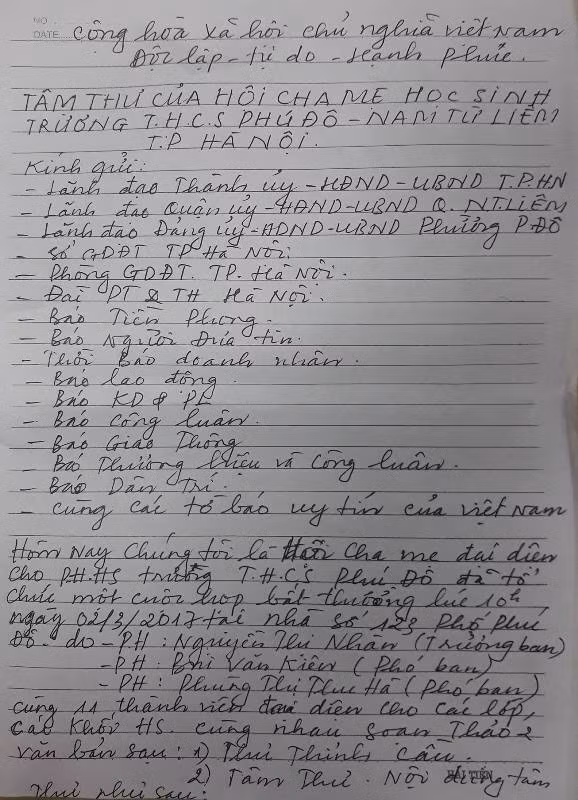 MO
DATE
Cộng hoà xã hội chủ nghĩa việt Nam
Độc lập - tự do - Hạnh phúc.
TÂM THƯ CỦA HỘI CHA MẸ HỌC SINH
TRƯỜNG T.H.C.S PHÚ ĐÔ - NAM TỪ LIÊM
T.P HÀ NỘI.
Kính gửi:
- Lãnh đạo Thành ủy - HĐND - UBND T.P.HN
- Lãnh đạo Quận ủy - HĐND - UBND Q. NT.LIÊM
- Lãnh đạo Đảng ủy - HĐND - UBND Phường P.ĐÔ
- Sở GDĐT TP Hà Nội.
- Phòng GDĐT. TP. Hà Nội.
- Đài PT & TH Hà Nội.
- Báo Tiền Phong.
- Báo Người Đưa tin.
- Thời Báo doanh nhân.
- Báo lao động.
- Báo KD & PL
- Báo Công luận.
- Báo Giao Thông
- Báo Thương hiệu và Công luận.
- Báo Dân Trí.
- Cùng các tờ báo uy tín của việt Nam
Hôm nay chúng tôi là Hội Cha mẹ đại diện
cho P.H.HS trường T.H.C.S Phú Đô đã tổ
chức một cuộc họp bất thường lúc 10h
ngày 02/3/2017 tại nhà số 123 Phố Phú
Đô - do - PH: Nguyễn Thị Nhàn (Trưởng ban)
- PH: Phí Văn Kiên (Phó ban)
- PH: Phùng Thị Thu Hà (Phó ban)
cùng 11 thành viên đại diện cho các lớp,
các khối HS. cùng nhau soạn Thảo 2
văn bản sau: 1) Thư Thỉnh Cầu.
2) Tâm Thư. Nội dung tâm
Thư như sau:
HẢI TIẾN